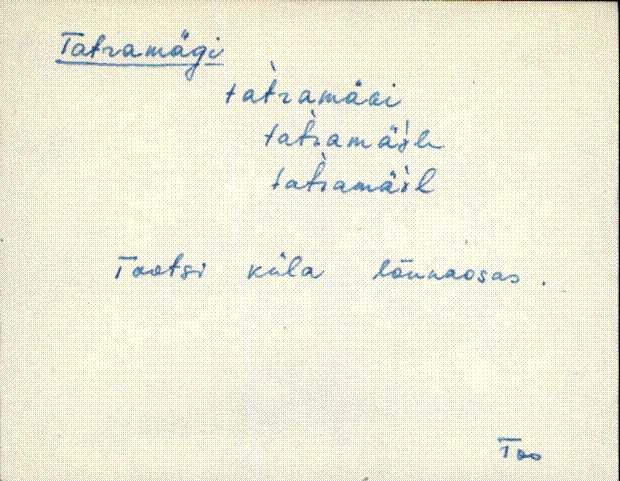 Tatramägi
tat̀ramäGi
tat̀ramä̀le
tat̀ramä̀l
Tootsi küla lõunaosas.
Too